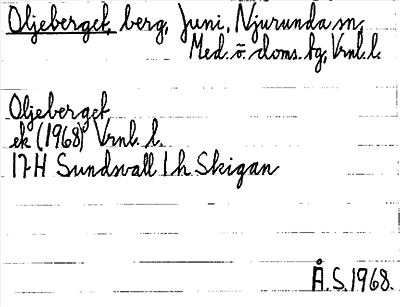 Oljeberget, berg, Juni, Njurunda sn,
Med. ö. doms. tg, Vrnl. l.
Oljeberget
ek (1968) Vrnl. l.
17H Sundsvall 1 h Skigan
Å.S. 1968.